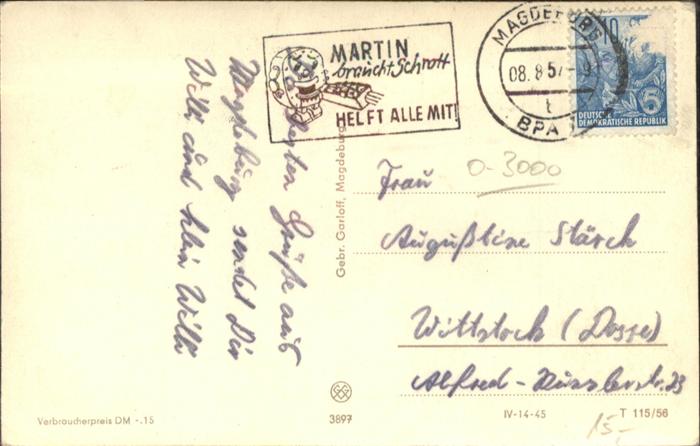 MARTIN
braucht Schrott
HELFT ALLE MIT!
MAGDEBURG
08.8.57
t
BPA
10
5
DEUTSCHE
DEMOKRATISCHE REPUBLIK
Die besten Grüße aus
Magdeburg sendet Dir
Willi und klein Willi
Gebr. Garloff, Magdeburg
0-3000
Frau
Augußtine Stärck
Wittstock (Dosse)
Alfred-
23
Verbraucherpreis DM -.15
3897
IV-14-45
T 115/56
15,-